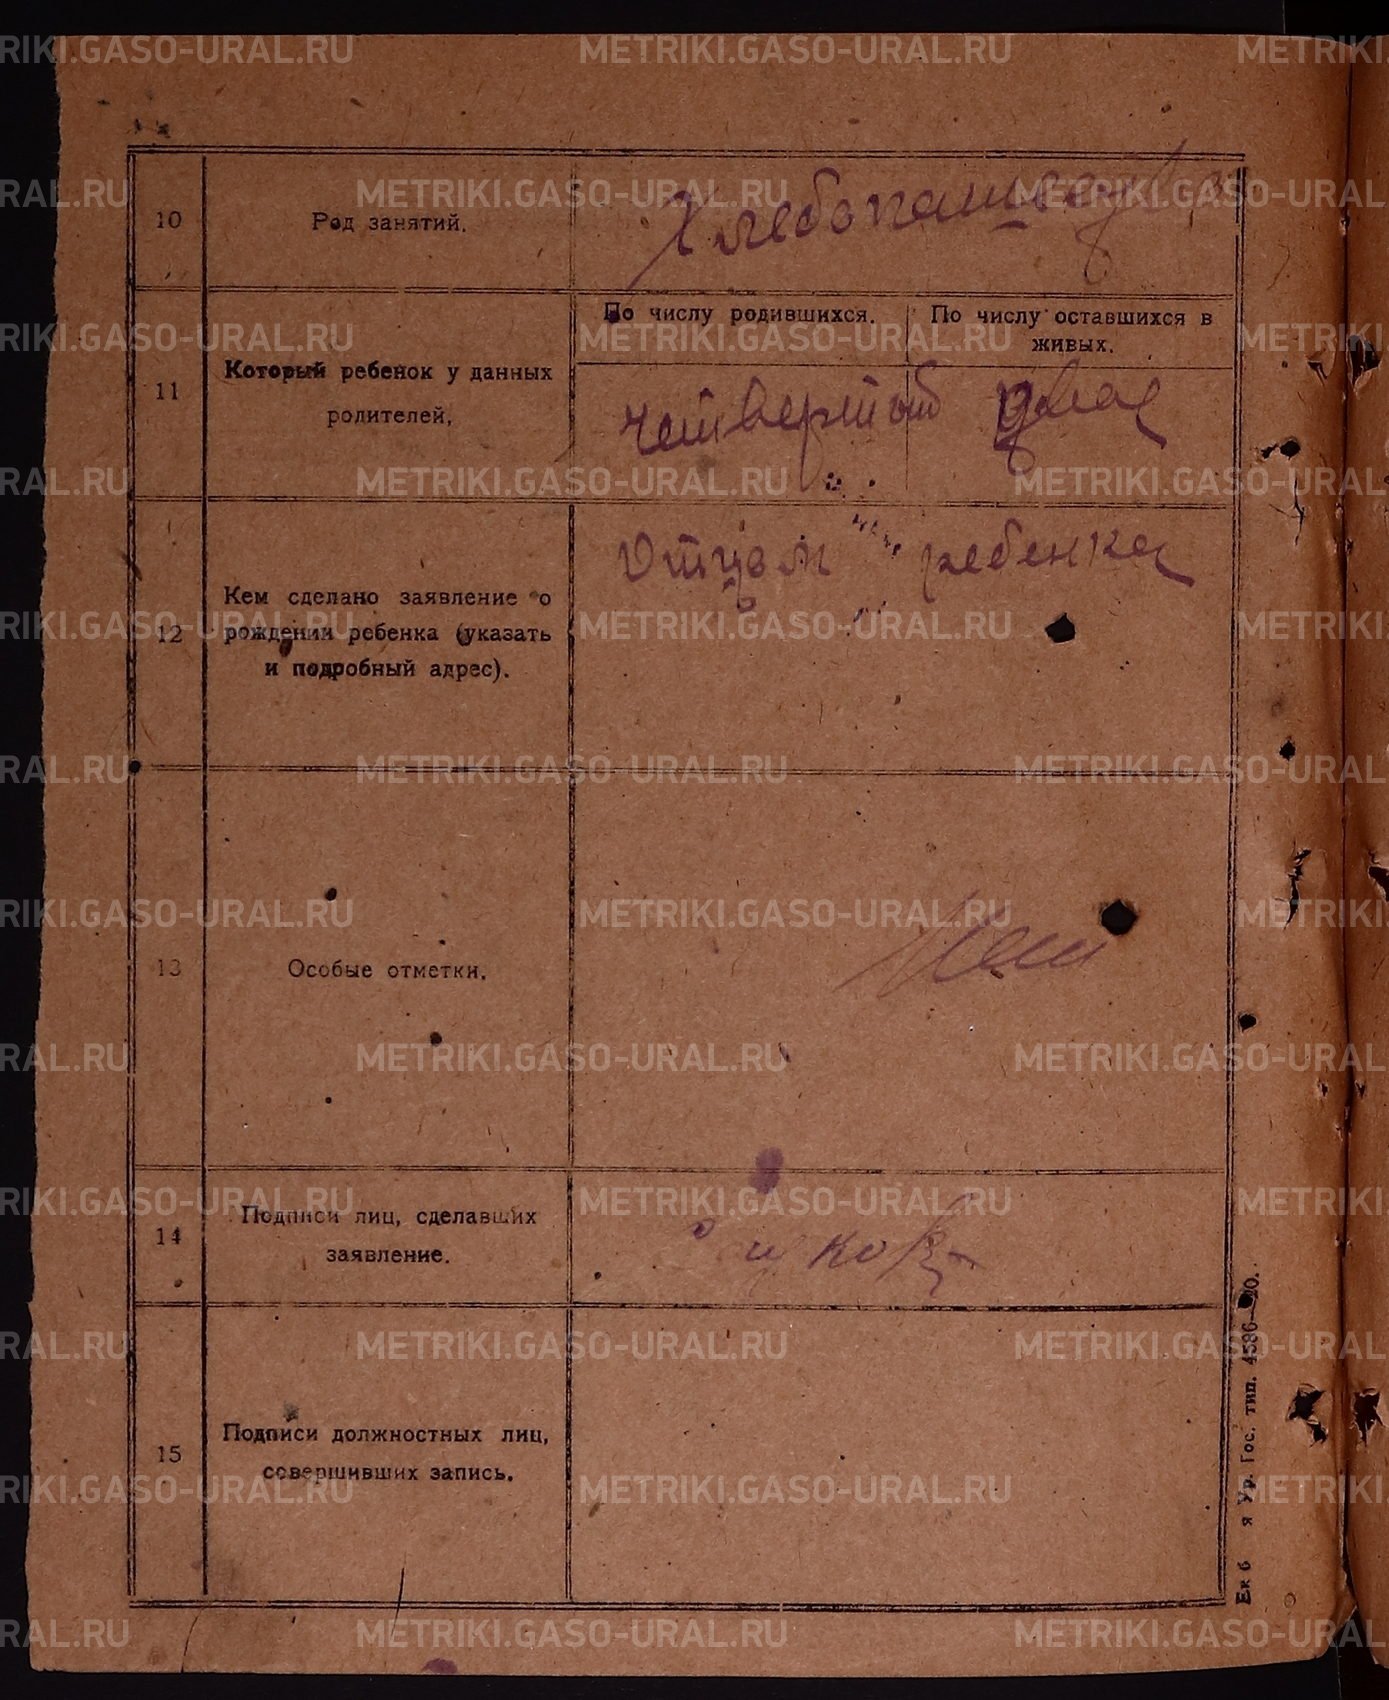 10
Род занятий.
11
Который ребенок у данных
родителей.
По числу родившихся.
По числу оставшихся в
живых.
четвертый
двое
12
Кем сделано заявление о
рождении ребенка (указать
и подробный адрес).
Отцом ребенка
13
Особые отметки.
Нет
14
Подписи лиц, сделавших
заявление.
15
Подписи должностных лиц,
совершивших запись.
Ур. Гос. тип. 4586—20.
METRIKI.GASO-URAL.RU